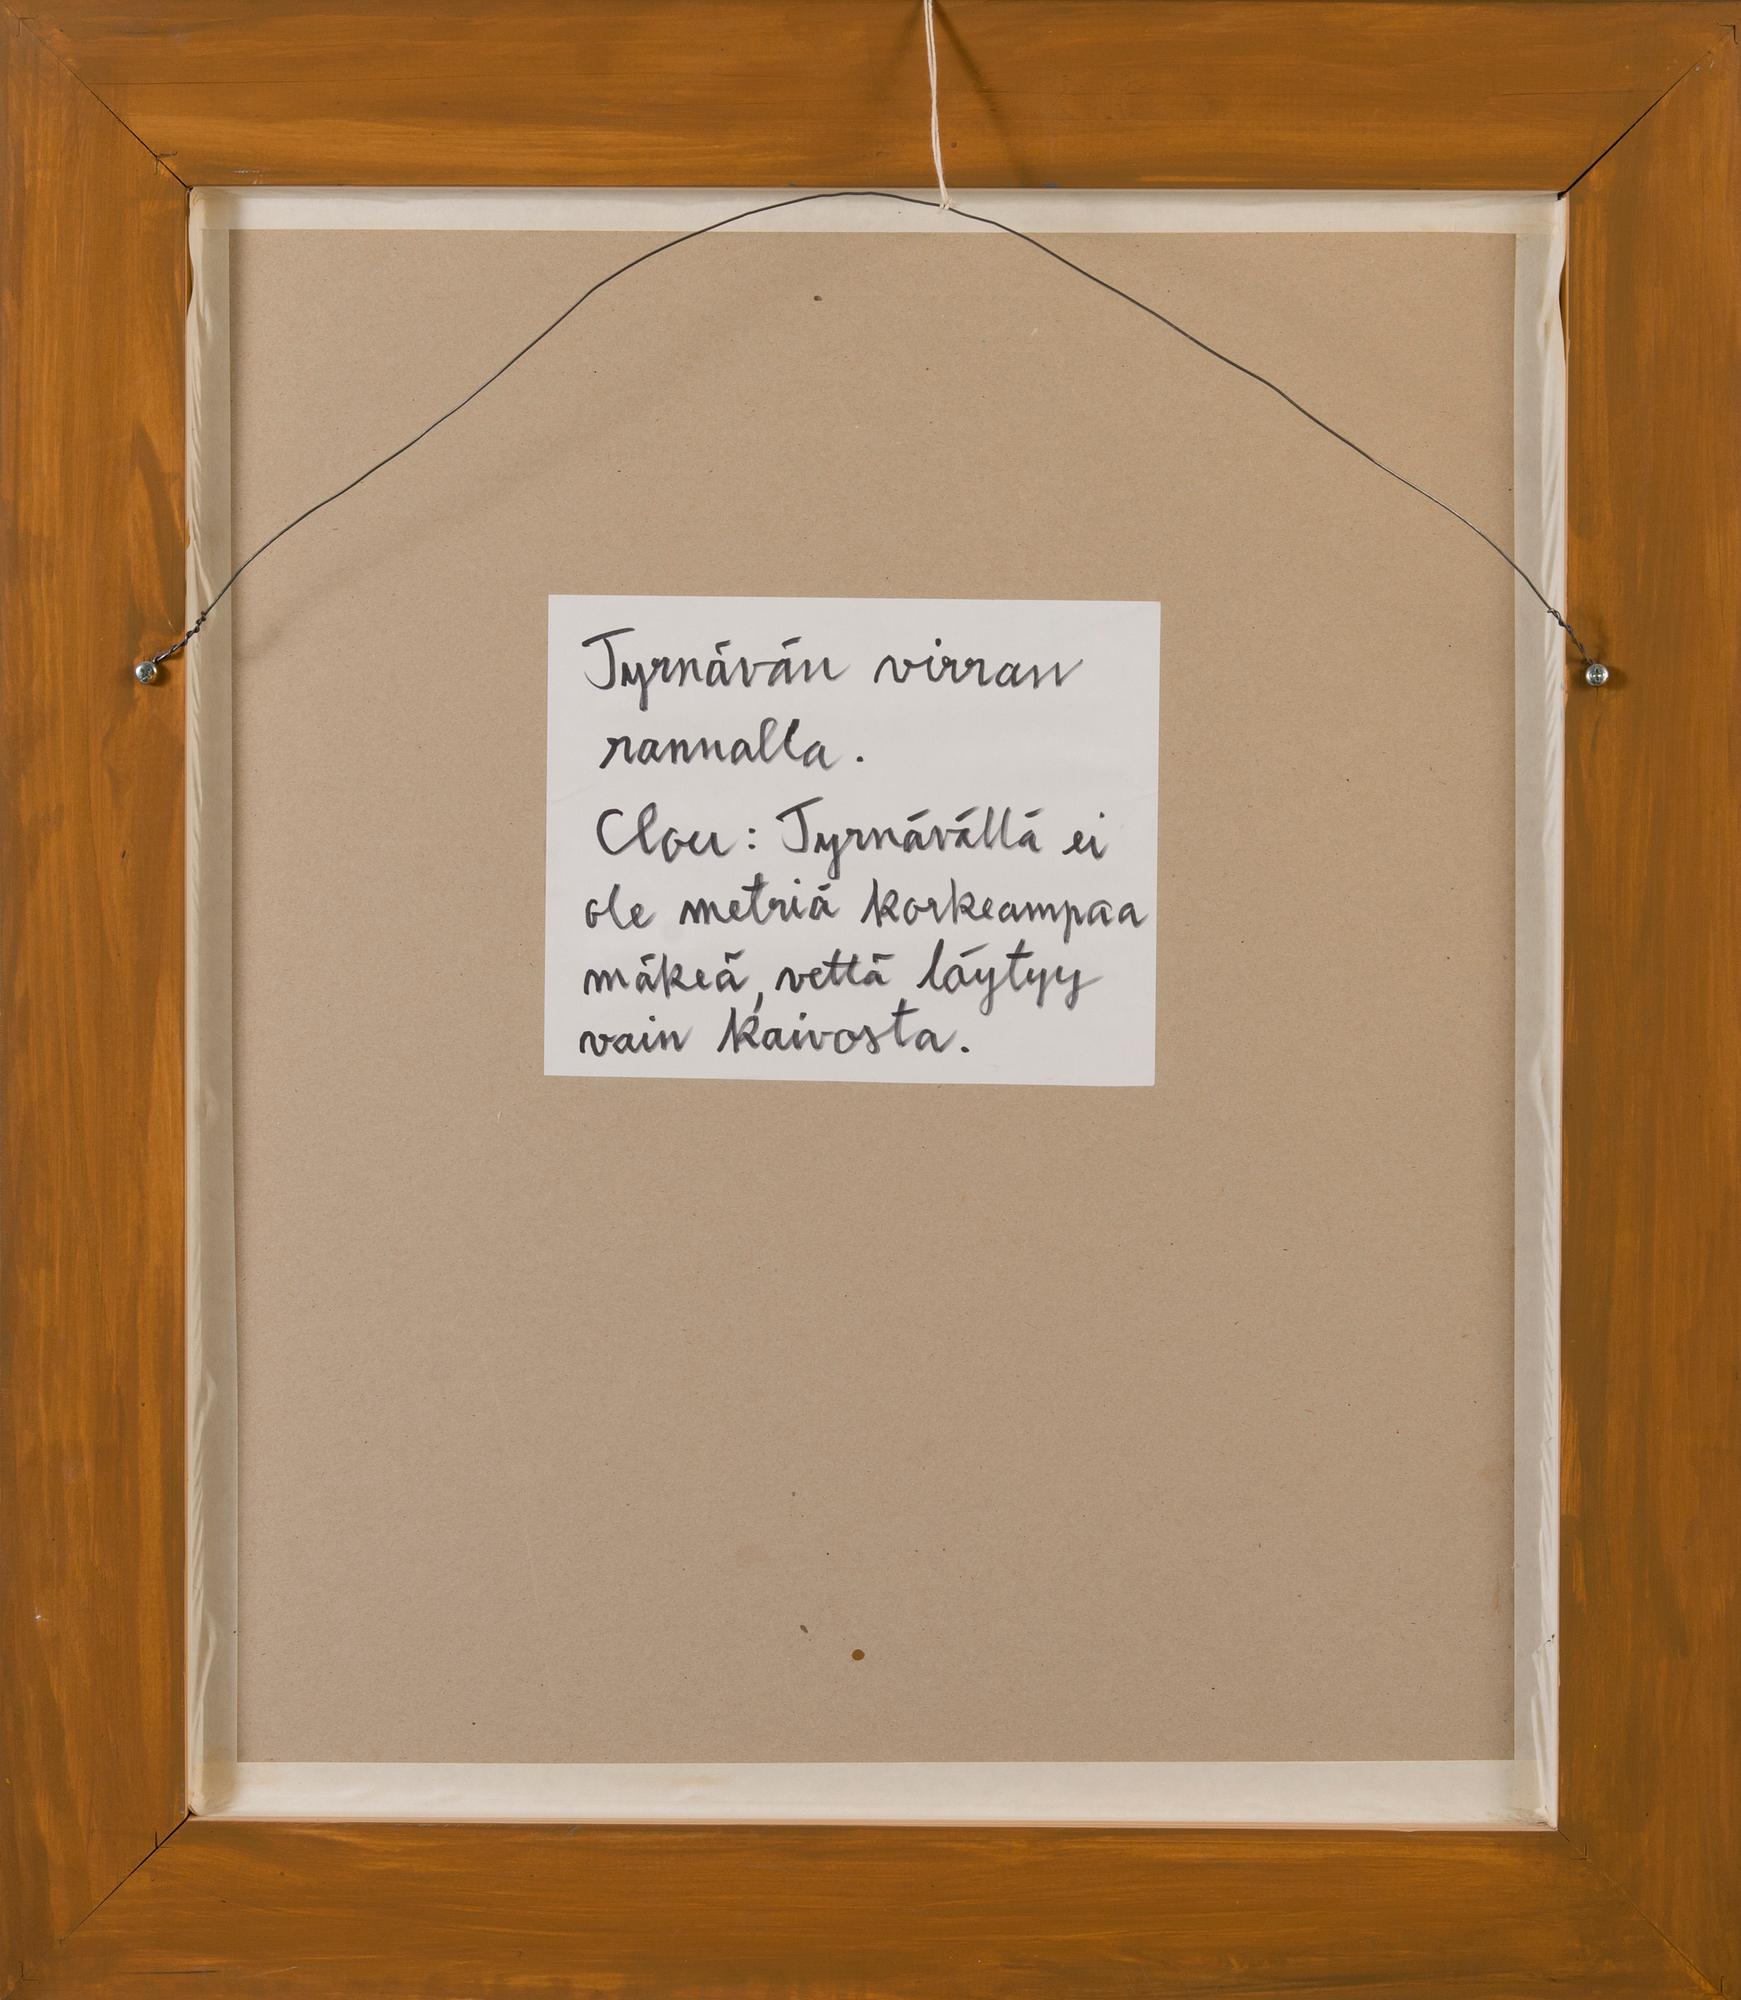 Tyrnävän virran
rannalla.
Clou: Tyrnävällä ei
ole metriä korkeampaa
mäkeä, vettä löytyy
vain kaivosta.